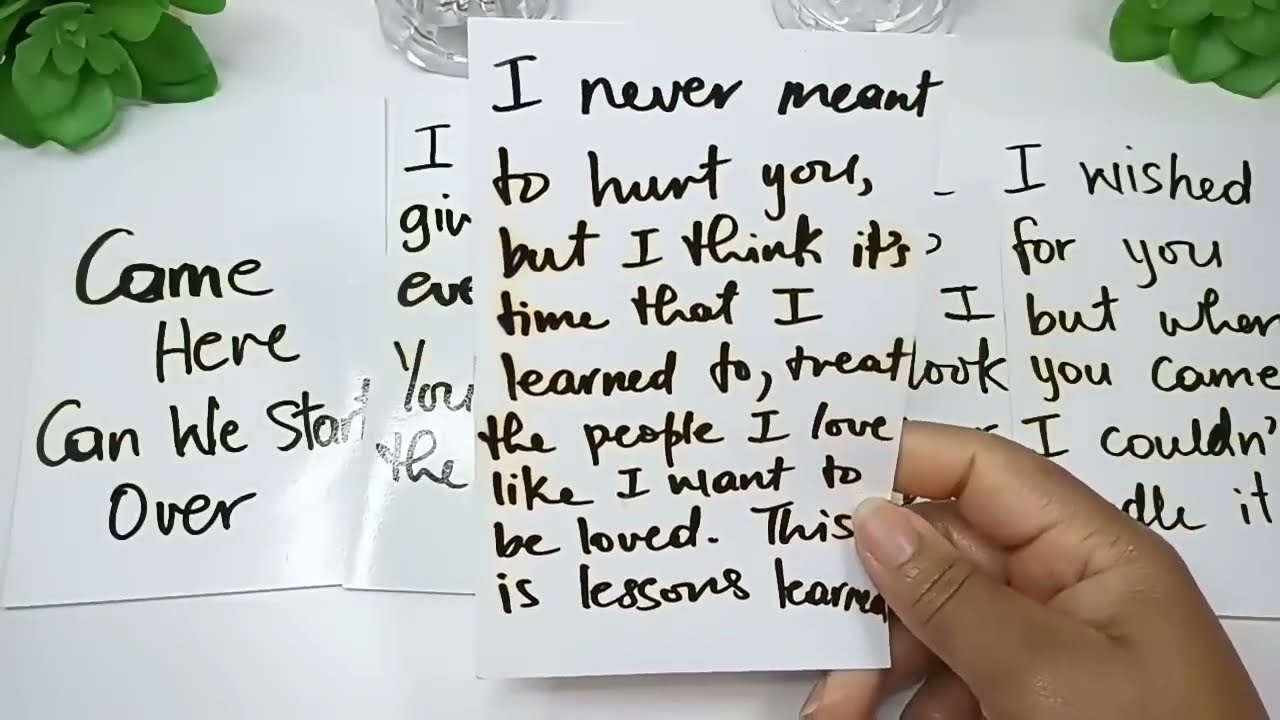 Come
Here
Can We Start
Over
I
You
the
I never meant
to hurt you,
but I think it's
time that I
learned to, treat
the people I love
like I want to
be loved. This
is lessons learned
I
look
I wished
for you
but when
you came
I couldn'
it